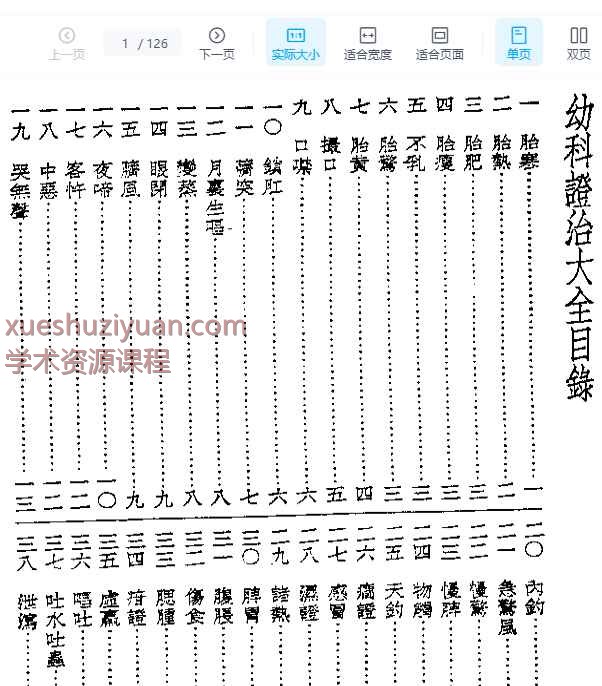 上一页
1 / 126
下一页
实际大小
适合宽度
适合页面
单页
双页
幼科證治大全目錄
一 胎寒……一
二 胎熱……二
三 胎肥……三
四 胎瘦……三
五 不乳……三
六 胎驚……三
七 胎黃……四
八 撮口……五
九 口噤……六
一〇 鎖肛……六
一一 臍突……七
一二 月裏生……八
一三 變蒸……八
一四 眼閉……九
一五 臍風……九
一六 夜啼……一〇
一七 客忤……一二
一八 中惡……一二
一九 哭無聲……一三
二〇 內釣……
二一 急驚風……
二二 慢驚……
二三 慢脾……
二四 物觸……
二五 天釣……
二六 癇證……
二七 感冒……
二八 濕證……
二九 諸熱……
三〇 脾胃……
三一 腹脹……
三二 傷食……
三三 腮腫……
三四 證……
三五 虛羸……
三六 嘔吐……
三七 吐水吐蟲……
三八 泄瀉……
xueshuziyuan.com
学术资源课程